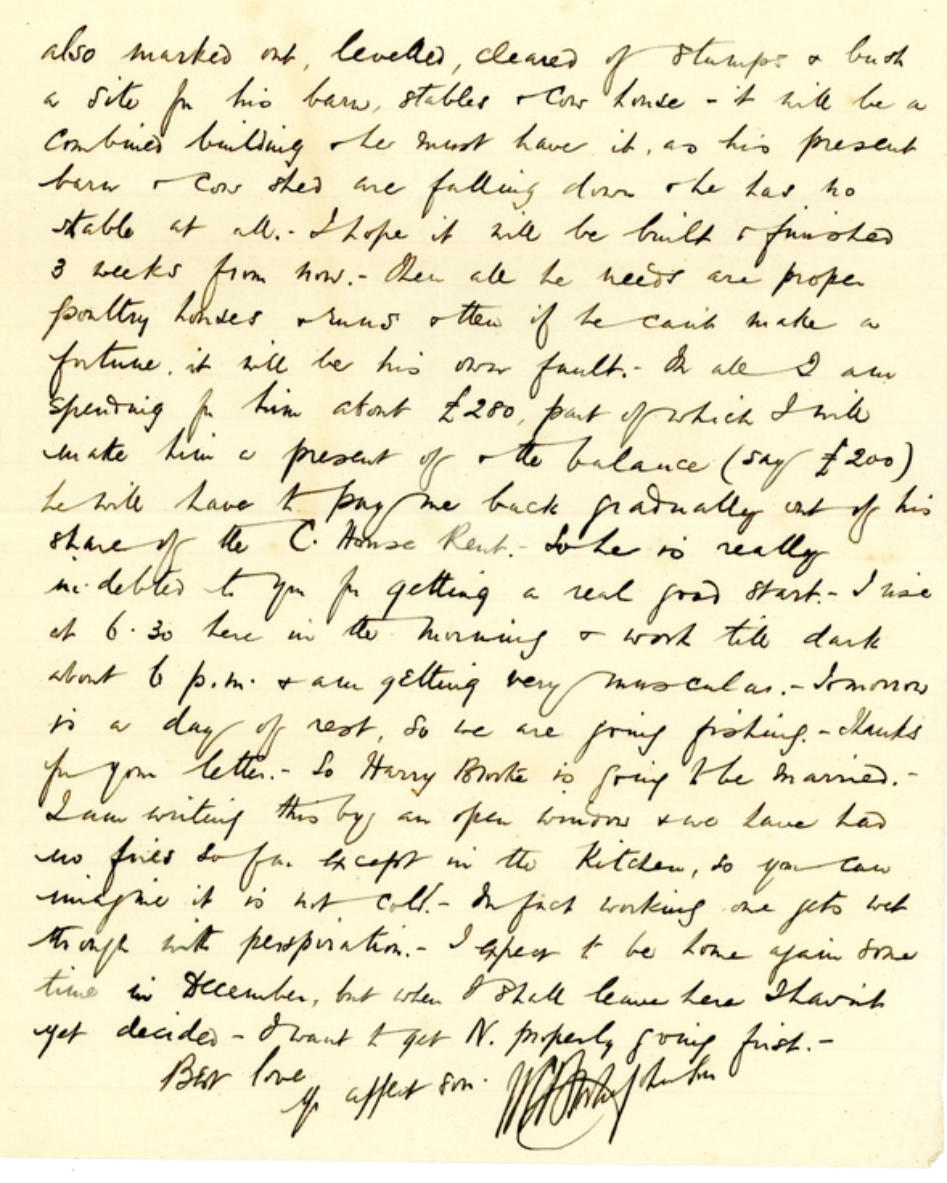 also marked out, levelled, cleared of stumps & bush
a site for his barn, stables & cow house - it will be a
combined building & he must have it, as his present
barn & cow shed are falling down & he has no
stable at all.- I hope it will be built & finished
3 weeks from now.- Then all he needs are proper
poultry houses & runs & then if he can't make a
fortune, it will be his own fault.- In all I am
spending for him about £280, part of which I will
make him a present of & the balance (say £200)
he will have to pay me back gradually out of his
share of the C. House Rent.- So he is really
indebted to you for getting a real good start.- I rise
at 6.30 here in the morning & work till dark
about 6 p.m. & am getting very muscular.- Tomorrow
is a day of rest, so we are going fishing.- Thanks
for your letter.- So Harry Brooke is going to be married.-
I am writing this by an open window & we have had
no fires so far except in the kitchen, so you can
imagine it is not cold.- In fact working one gets wet
through with perspiration.- I expect to be home again some
time in December, but when I shall leave here I havn't
yet decided - I want to get N. properly going first.-
Best love
Yr affect son.